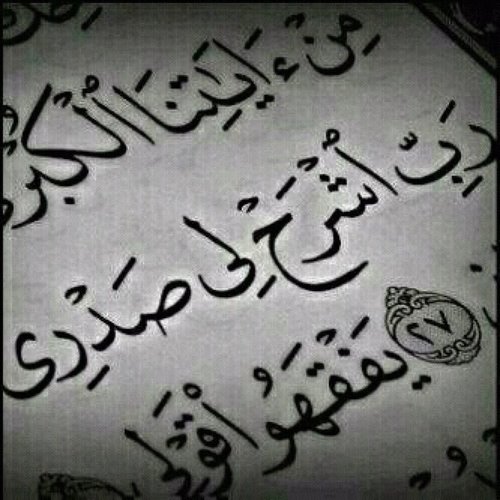 مِنْ ءَايَٰتِنَا الْكُبْرَى
رَبِّ اشْرَحْ لِى صَدْرِى
٢٧ يَفْقَهُوا قَوْلِى